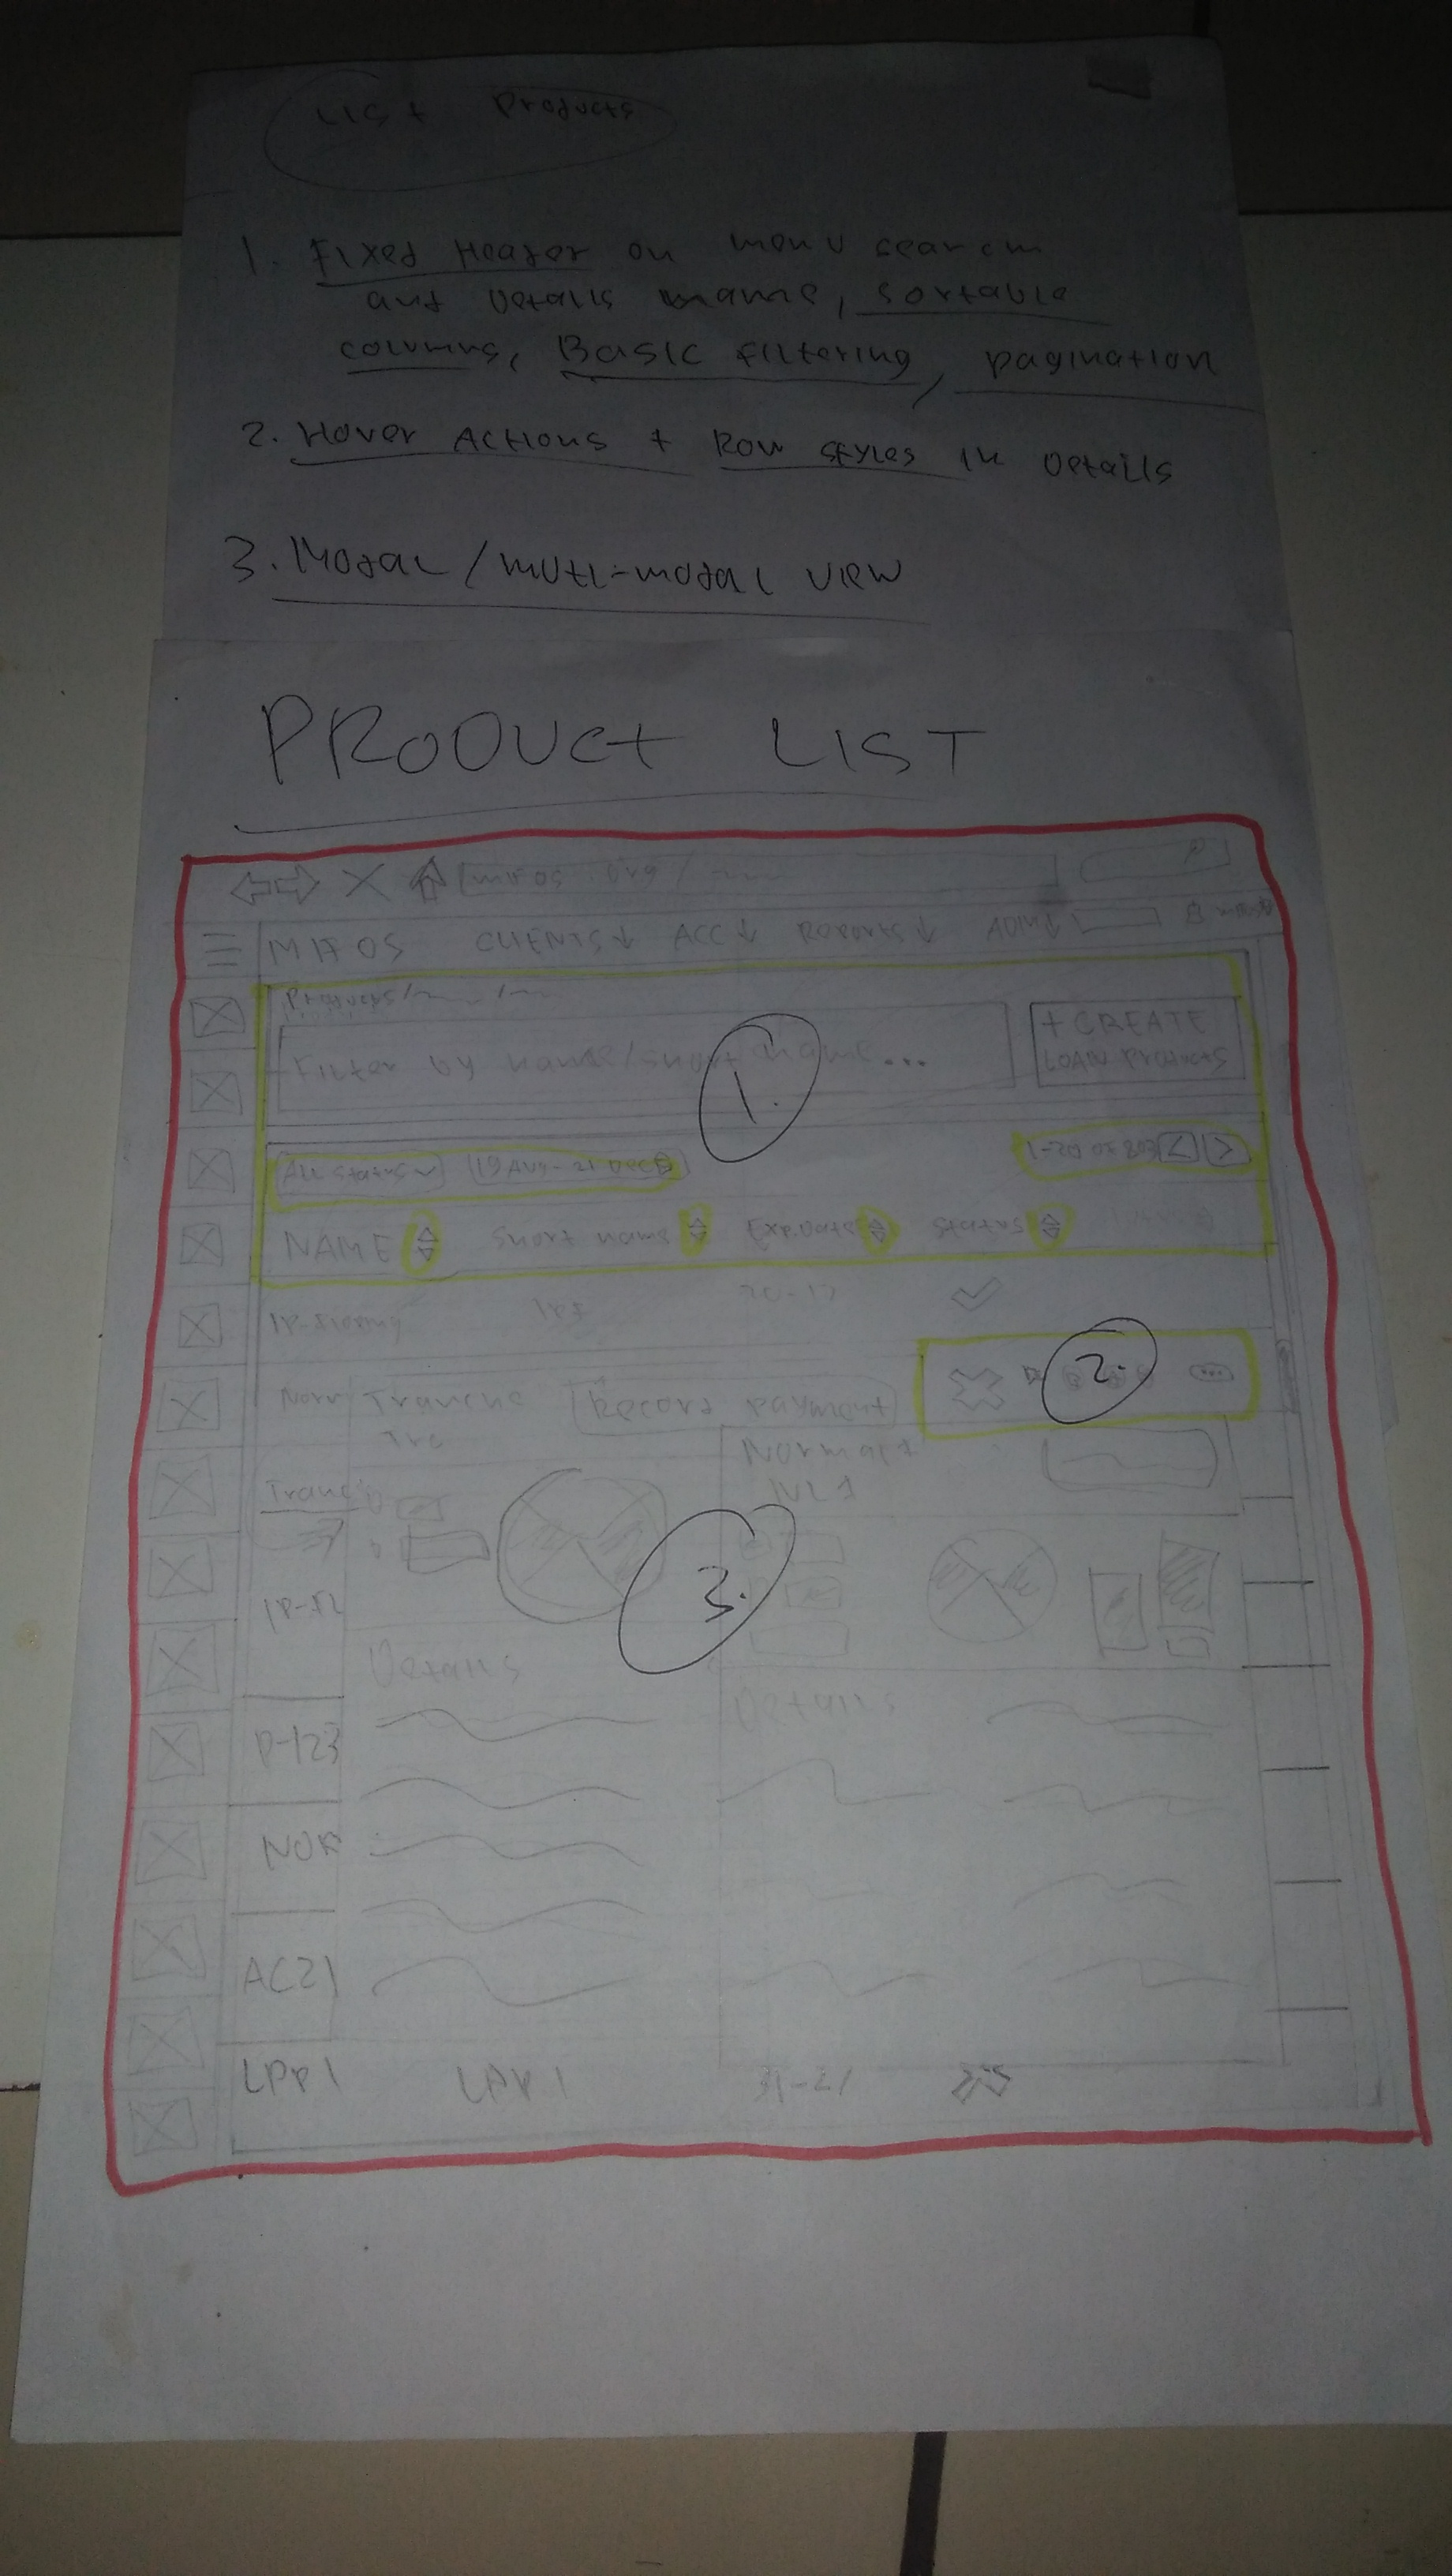 List Products
1. Fixed Header on menu search
and Details name, sortable
columns, Basic filtering, pagination
2. Hover Actions + Row styles in Details
3. Modal / muti-modal view
PRODUCT LIST
mifos org /
MIFOS CLIENTS ACC Reports ADM
Products /
Filter by name/short name...
+ CREATE
LOAN Products
1.
All status 19 Aug - 21 Dec
1-20 of 803 < >
NAME Short name Exp.Date Status
20-12
2.
Tranche Record payment
Trc
Normal
3.
Details
Details
P-123
NOR
AC21
LPP1 LPP1 31-21